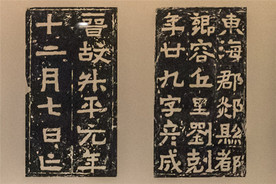 東海郡郯縣都
鄉容丘里劉剋
年廿九字彥成
晉故升平元年
十二月七日亡